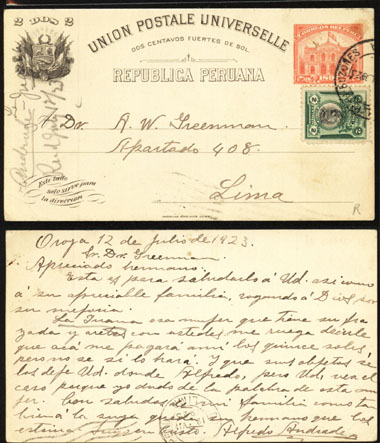 2 DOS 2
UNION POSTALE UNIVERSELLE
DOS CENTAVOS FUERTES DE SOL.
REPUBLICA PERUANA
CORREOS DEL PERU
Dr. A. W. Greenman
Apartado 408.
Lima
Este lado
solo sirve para
la direccion
R
Oroya 12 de Julio de 1923.
Sr. Dr. Greenman
Apreciado hermano:
Esta es para saludarlo á Ud. asi como
á su apreciable familia, rogando á Dios por
su mejoria.
La Juana esa mujer que tiene su fra
zada y aretes con ustedes me ruega decirle
que acá me pagará ami los quince soles,
pero no se si lo hará. Y que sus objetos se
los deje Ud. donde Alfredo, pero Ud. vea el
caso porque yo dudo de la palabra de esta mu
jer. Con saludos de mi familia
á la suya quedo su hermano que lo
estima Alfredo Andrade